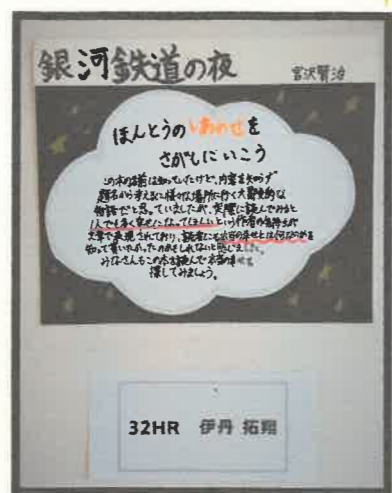 銀河鉄道の夜
宮沢賢治
ほんとうのしあわせを
さがしにいこう
この本の題は知っていたけど、内容を知らず
題名から考えるに様々な場所に行く大冒険的な
物語だと思っていましたが、実際に読んでみると
1人でも多く幸せになってほしいという作者の気持ちが
文章で表現されており、読者にも本当の幸せとは何なのかを
知って貰いたかったのかもしれないと感じました。
みなさんもこの本を読んで本当の幸せを
探してみましょう。
32HR 伊丹 拓翔